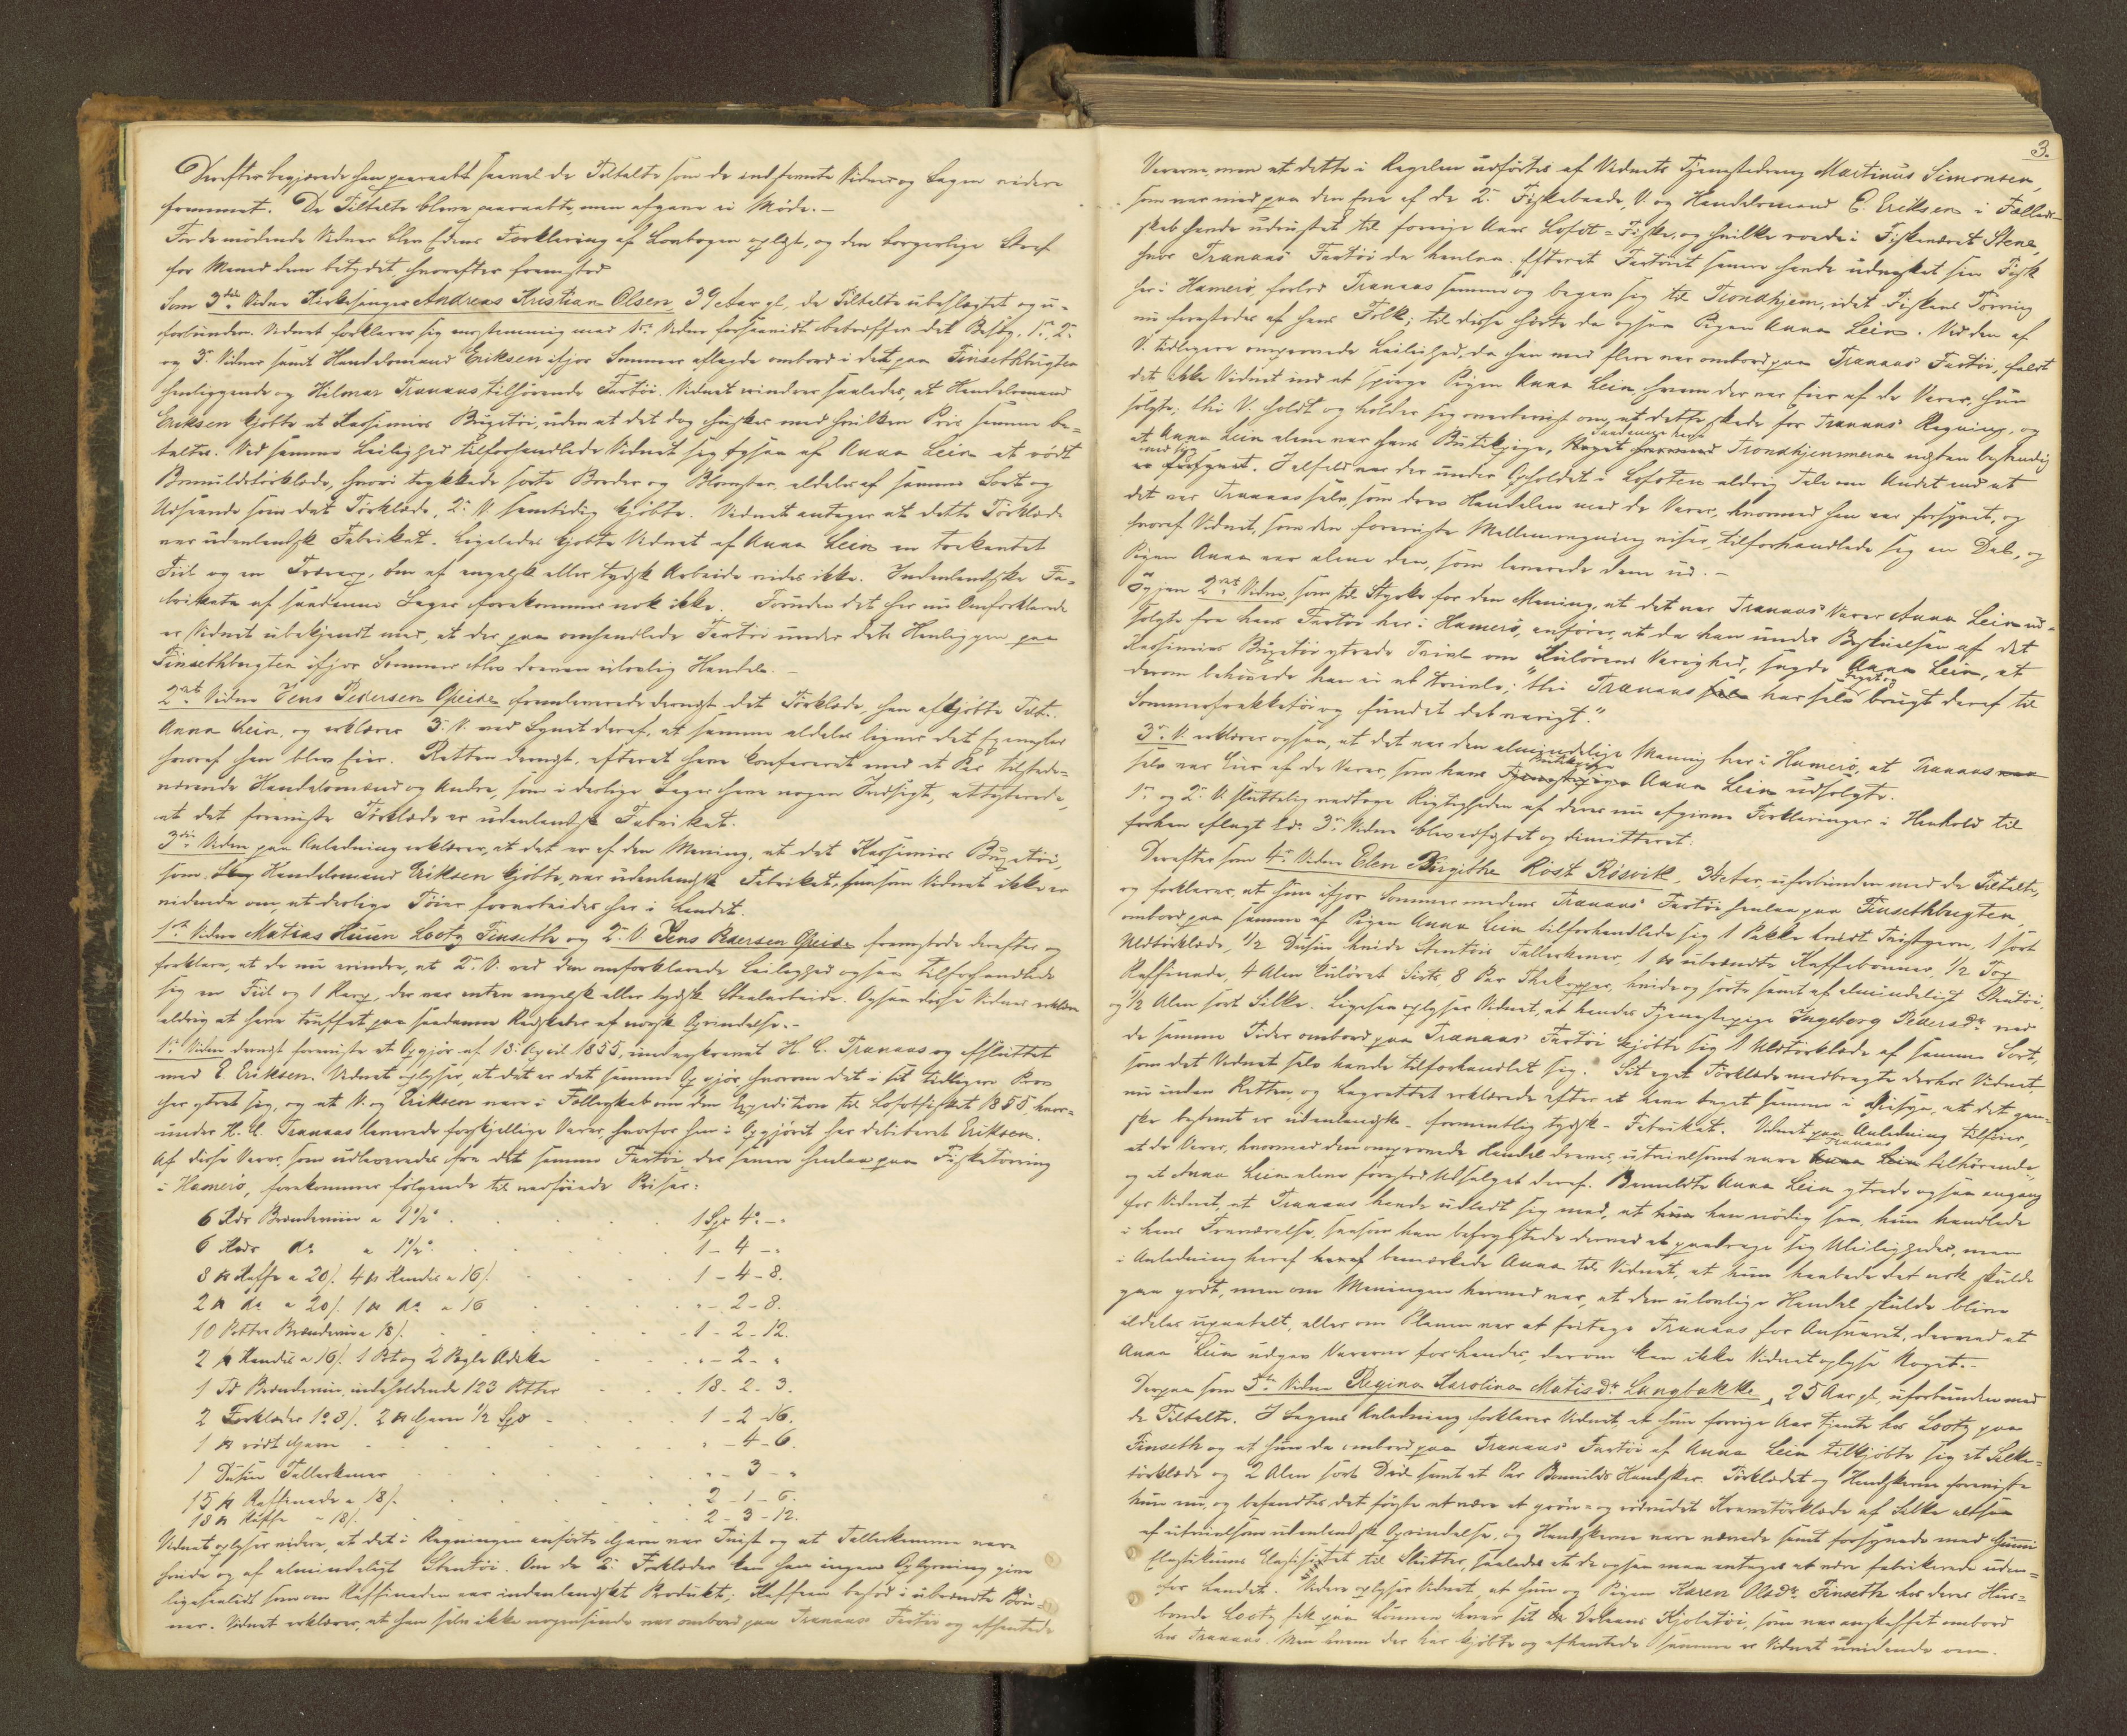 Derefter begjærede han paaraabt saavel de Tiltalte som de indstævnte Vidner og Sagen videre
fremmet. De Tiltalte bleve paaraabte, men afgave ei Møde.—
For de mødende Vidner blev Edens Forklaring af Lovbogen oplæst, og den borgerlige Straf
for Meened dem betydet, hvorefter fremstod
Som 3die Vidne Kirkesanger Andreas Kristian Olsen, 39 Aar gl, de Tiltalte ubeslægtet og u-
forbunden. Vidnet forklarer sig overstemmig med 1ste Vidne forsaavidt betræffer det Besøg, 1ste, 2det
og 3die Vidner samt Handelsmand Eriksen ifjor Sommer aflagde ombord i det paa Finsethbugten
henliggende og Hilmar Tranaas tilhørende Fartøi. Vidnet erindrer saaledes, at Handelsmand
Eriksen kjøbte et Kassimirs Buxetøi, uden at det dog husker med hvilken Pris samme be-
taltes. Ved samme Leilighed tilforhandlede Vidnet sig ogsaa af Anna Lein et rødt
Bomuldstørklæde, hvori trykkede sorte Border og Blomster, aldeles af samme Sort og
Udseende som det Tørklæde, 2det V. samtidig kjøbte. Vidnet antager at dette Tørklæde
var udenlandsk Fabrikat. Ligeledes kjøbte Vidnet af Anna Lein en trekantet
Fiil og en Trærasp, om af engelsk eller tydsk Arbeide vides ikke. Indenlandske Fa-
brikata af saadanne Sager forekommer nok ikke. Foruden det her nu Omforklarede
er Vidnet ubekjendt med, at der paa omhandlede Fartøi under dets Henliggen paa
Finsethbugten ifjor Sommer blev dreven ulovlig Handel.—
2det Vidne Jens Pedersen Opeide fremleverede dernæst det Tørklæde, han afkjøbte Tilt.
Anna Lein, og erklærer 3. V. ved Synet deraf, at samme aldeles ligner det Exemplar
hvoraf han blev Eier. Retten dernæst, efterat have confereret med et Par tilstede-
værende Handelsmænd og Andre, som i deslige Sager have nogen Indsigt, attesterede,
at det foreviste Tørklæde er udenlandsk Fabrikat.
3die Vidne paa Anledning erklærer, at det er af den Mening, at det Kassimirs Buxetøi,
som Handelsmand Eriksen kjøbte, var udenlandsk Fabrikat, saasom Vidnet ikke er
vidende om, at deslige Tøier forarbeides her i Landet.
1ste Vidne Matias Huun Lootz Finseth og 2. V. Jens Pedersen Opeide fremstode derefter og
forklare, at de nu erindre, at 2. V. ved den omforklarede Leilighed ogsaa tilforhandlede
sig en Fiil og 1 Rasp, der var enten engelsk eller tydsk Staalarbeide. Ogsaa disse Vidner erklære
aldrig at have truffet paa saadanne Redskaber af norsk Oprindelse.—
1ste Vidne dernæst foreviste et Opgjør af 13. April 1855, underskrevet H. C. Tranaas og afsluttet
med E Eriksen. Vidnet oplyser, at det er det samme Opgjør hvorom det i sit tidligere Prov
har ytret sig, og at V. og Eriksen vare i Fællesskab om den Expedition til Lofotfisket 1855, hvor-
under H. C. Tranaas leverede forskjellige Varer, hvorfor han i Opgjøret har debiteret Eriksen.
Af disse Varer, som udleveredes fra det samme Fartøi der senere henlaa paa Fisketørring
i Hamerø, forekommer følgende til vedføiede Priser:
6 Kdr Brændeviin a 1½ . . . 1 Spd 4 -
6 Kdr do a 1½ . . . 1 - 4 -
8 ℔ Kaffe a 20/. 4 ℔ Kandis a 16/. . . . 1 - 4 - 8.
2 ℔ do a 20/. 1 ℔ do a 16 . . . " - 2 - 8.
10 Potter Brændeviin a 18/. . . . 1 - 2 - 12.
2 ℔ Kandis a 16/. 1 Bet og 2 Pægle Adike . . . " - 2 - "
1 Td Brændeviin, indeholdende 123 Potter . . . 18 - 2 - 3.
2 Forklæder 1 3/. 2 ℔ Garn ½ Spd . . . 1 - 2 - 16.
1 ℔ rødt Garn . . . " - 4 - 6.
1 Dusin Tallerkener . . . " - 3 - "
15 ℔ Raffinade a 18/. . . . 2 - 1 - 6.
18 ℔ Kaffe " 18/. . . . 2 - 3 - 12.
Vidnet oplyser videre, at det i Regningen anførte Garn var Tvist og at Tallerkenerne vare
hvide og af almindeligt Stentøi. Om de 2de Forklæder kan han ingen Oplysning give
ligesaalidt som om Raffinaden var indenlandskt Produkt; Kaffeen bestod i ubrændte Bøn-
ner. Vidnet erklærer, at han selv ikke nogensinde var ombord paa Tranaas Fartøi og afhentede
3.
Varerne, men at dette i Regelen udførtes af Vidnets Tjenestedreng Martinus Simonsen,
som var med paa den Ene af de 2de Fiskebaade, V. og Handelsmand E. Eriksen i Fælleds-
skab havde udrustet til forrige Aars Lofot-Fiske, og hvilke roede i Fiskeværet Stene,
hvor Tranaas' Fartøi da henlaa. Efterat Fartøiet senere havde udvasket sin Fisk
her i Hamerø, forlod Tranaas samme og begav sig til Trondhjem, idet Fiskens Tørring
nu forestodes af hans Folk; til disse hørte da ogsaa Pigen Anna Lein. Ved den af
V. tidligere omprovede Leilighed, da han med flere var ombord paa Tranaas' Fartøi, faldt
det ikke Vidnet ind at spørge Pigen Anna Lein hvem der var Eier af de Varer, hun
solgte; thi V. holdt og holder sig overbevist om, at dette skede for Tranaas' Regning, og
at Anna Lein alene var hans Butikpige, Noget saadanne have Trondhjemmerne næsten bestandig
ved sig. Ialfald var der under Opholdet i Lofoten aldrig Tale om Andet end at
det var Tranaas selv, som drev Handelen med de Varer, hvormed han var forsynet, og
hvoraf Vidnet, som den foreviste Mellemregning viser, tilforhandlede sig en Deel, og
Pigen Anna var alene den, som leverede dem ud.—
Igjen 2det Vidne, som til Styrke for den Mening, at det var Tranaas' Varer Anna Lein ud-
solgte fra hans Fartøi her i Hamerø, anfører, at da han under Beskuelsen af det
Kassimirs Buxetøi ytrede Tvivl om "Kulørens Varighed, sagde Anna Lein, at
derom behøvede han ei at tvivle; thi Tranaas har selv taget og brugt deraf til
Sommerfrakketøi og fundet det varigt."
3die V. erklærer ogsaa, at det var den almindelige Mening her i Hamerø, at Tranaas
selv var Eier af de Varer, som hans Butikpige Anna Lein udsolgte.
1ste og 2det V. sluttelig vedtoge Rigtigheden af deres nu afgivne Forklaringer i Henhold til
forhen aflagt Ed. 3die Vidne blev edfæstet og dimitteret.
Derefter som 4de Vidne Elen Birgithe Rost Røsvik, 34 Aar, uforbunden med de Tiltalte,
og forklarer, at hun ifjor Sommer medens Tranaas' Fartøi henlaa paa Finsethbugten,
ombord paa samme af Pigen Anna Lein tilforhandlede sig 1 Pakke hvidt Tvistgarn, 1 sort
Uldtørklæde, 1/2 Dusin hvide Stentøis Tallerkener, 1 ℔ ubrændte Kaffebønner, 1/2 Top
Raffinade, 4 Alen kuløret Sirts, 8 Par Thekopper, hvide og sorte samt af almindeligt Stentøi,
og 1/2 Alen sort Silke. Ligesaa oplyser Vidnet, at hendes Tjenestepige Ingeborg Pedersdr ved
de samme Tider ombord paa Tranaas' Fartøi kjøbte sig 1 Uldtørklæde af samme Sort,
som det Vidnet selv havde tilforhandlet sig. Sit eget Tørklæde medbragte derhos Vidnet
nu inden Retten, og Lagrettet erklærede efter at have taget samme i Øiesyn, at det gan-
ske bestemt er udenlandsk - formentlig tydsk - Fabrikat. Vidnet paa Anledning tilføier,
at de Varer, hvormed den omprovede Handel dreves, utvivlsomt vare Tranaas tilhørende,
og at Anna Lein alene forestod Udsalget deraf. Bemeldte Anna Lein ytrede ogsaa engang
for Vidnet, at Tranaas havde udladt sig med, at han nødig saa, hun handlede
i hans Fraværelse, saasom han befrygtede derved at paadrage sig Ubeiligheder, men
i Anledning heraf bemærkede Anna til Vidnet, at hun haabede det nok skulde
gaa godt, men om Meningen hermed var, at den ulovlige Handel skulde blive
aldeles upaatalt, eller om Planen var at fritage Tranaas for Ansvaret, derved at
Anna Lein udgav Varerne for hendes, derom kan ikke Vidnet oplyse Noget.—
Derpaa som 5te Vidne Regina Karolina Matisdr Langbakke, 25 Aar gl, uforbunden med
de Tiltalte. I Sagens Anledning forklarer Vidnet, at hun forrige Aar tjente hos Lootz paa
Finseth og at hun da ombord paa Tranaas' Fartøi af Anna Lein tilkjøbte sig et Silke-
tørklæde og 2 Alen sort samt et Par Bomulds Handsker. Tørklædet og Handskerne foreviste
hun nu, og befandtes det første at være et grøn- og rødrudet Kravetørklæde af Silke altsaa
af utvivlsom udenlandsk Oprindelse, og Handskerne vare vævede samt forsynede med Gummi
til Slutter, saaledes at de ogsaa maa antages at være fabrikerede uden-
for Landet. Videre oplyser Vidnet, at hun og Pigen Karen Olsdr Finseth hos deres Huus-
bonde Lootz fik paa Lønnen hver sit Orleans Kjoletøi, som var anskaffet ombord
hos Tranaas. Men hvem der har kjøbte og afhentede samme er Vidnet uvidende om.